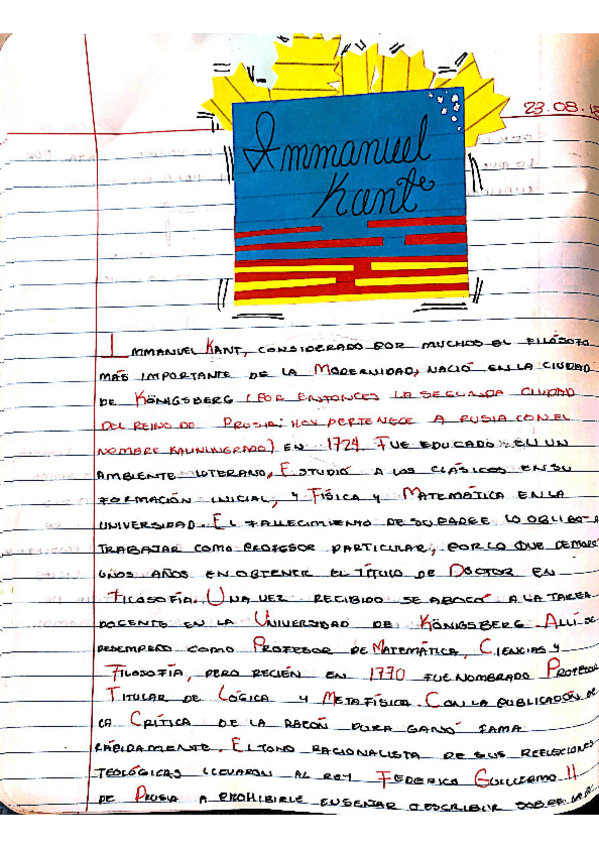 23.08.18
Immanuel
Kant
IMMANUEL KANT, CONSIDERADO POR MUCHOS EL FILÓSOFO
MÁS IMPORTANTE DE LA MODERNIDAD, NACIÓ EN LA CIUDAD
DE KÖNIGSBERG (POR ENTONCES LA SEGUNDA CIUDAD
DEL REINO DE PRUSIA; HOY PERTENECE A RUSIA CON EL
NOMBRE KALININGRADO) EN 1724. FUE EDUCADO EN UN
AMBIENTE LUTERANO, ESTUDIÓ A LOS CLÁSICOS EN SU
FORMACIÓN INICIAL, Y FÍSICA Y MATEMÁTICA EN LA
UNIVERSIDAD. EL FALLECIMIENTO DE SU PADRE LO OBLIGÓ A
TRABAJAR COMO PROFESOR PARTICULAR, POR LO QUE DEMORÓ
UNOS AÑOS EN OBTENER EL TÍTULO DE DOCTOR EN
FILOSOFÍA. UNA VEZ RECIBIDO SE ABOCÓ A LA TAREA
DOCENTE EN LA UNIVERSIDAD DE KÖNIGSBERG. ALLÍ SE
DESEMPEÑÓ COMO PROFESOR DE MATEMÁTICA, CIENCIAS Y
FILOSOFÍA, PERO RECIÉN EN 1770 FUE NOMBRADO PROFESOR
TITULAR DE LÓGICA Y METAFÍSICA. CON LA PUBLICACIÓN DE
LA CRÍTICA DE LA RAZÓN PURA GANÓ FAMA
RÁPIDAMENTE. EL TONO RACIONALISTA DE SUS REFLEXIONES
TEOLÓGICAS LLEVARON AL REY FEDERICO GUILLERMO II
DE PRUSIA A PROHIBIRLE ENSEÑAR O ESCRIBIR SOBRE